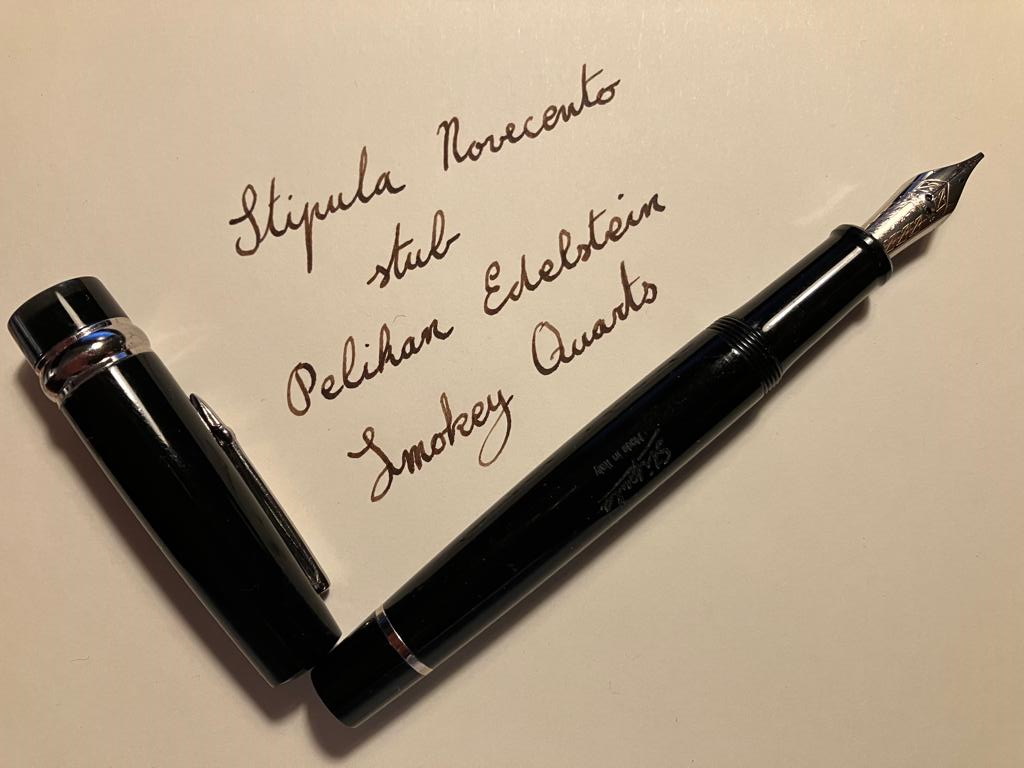 Stipula Novecento
stub
Pelikan Edelstein
Smokey Quarts
Stipula
Made in Italy